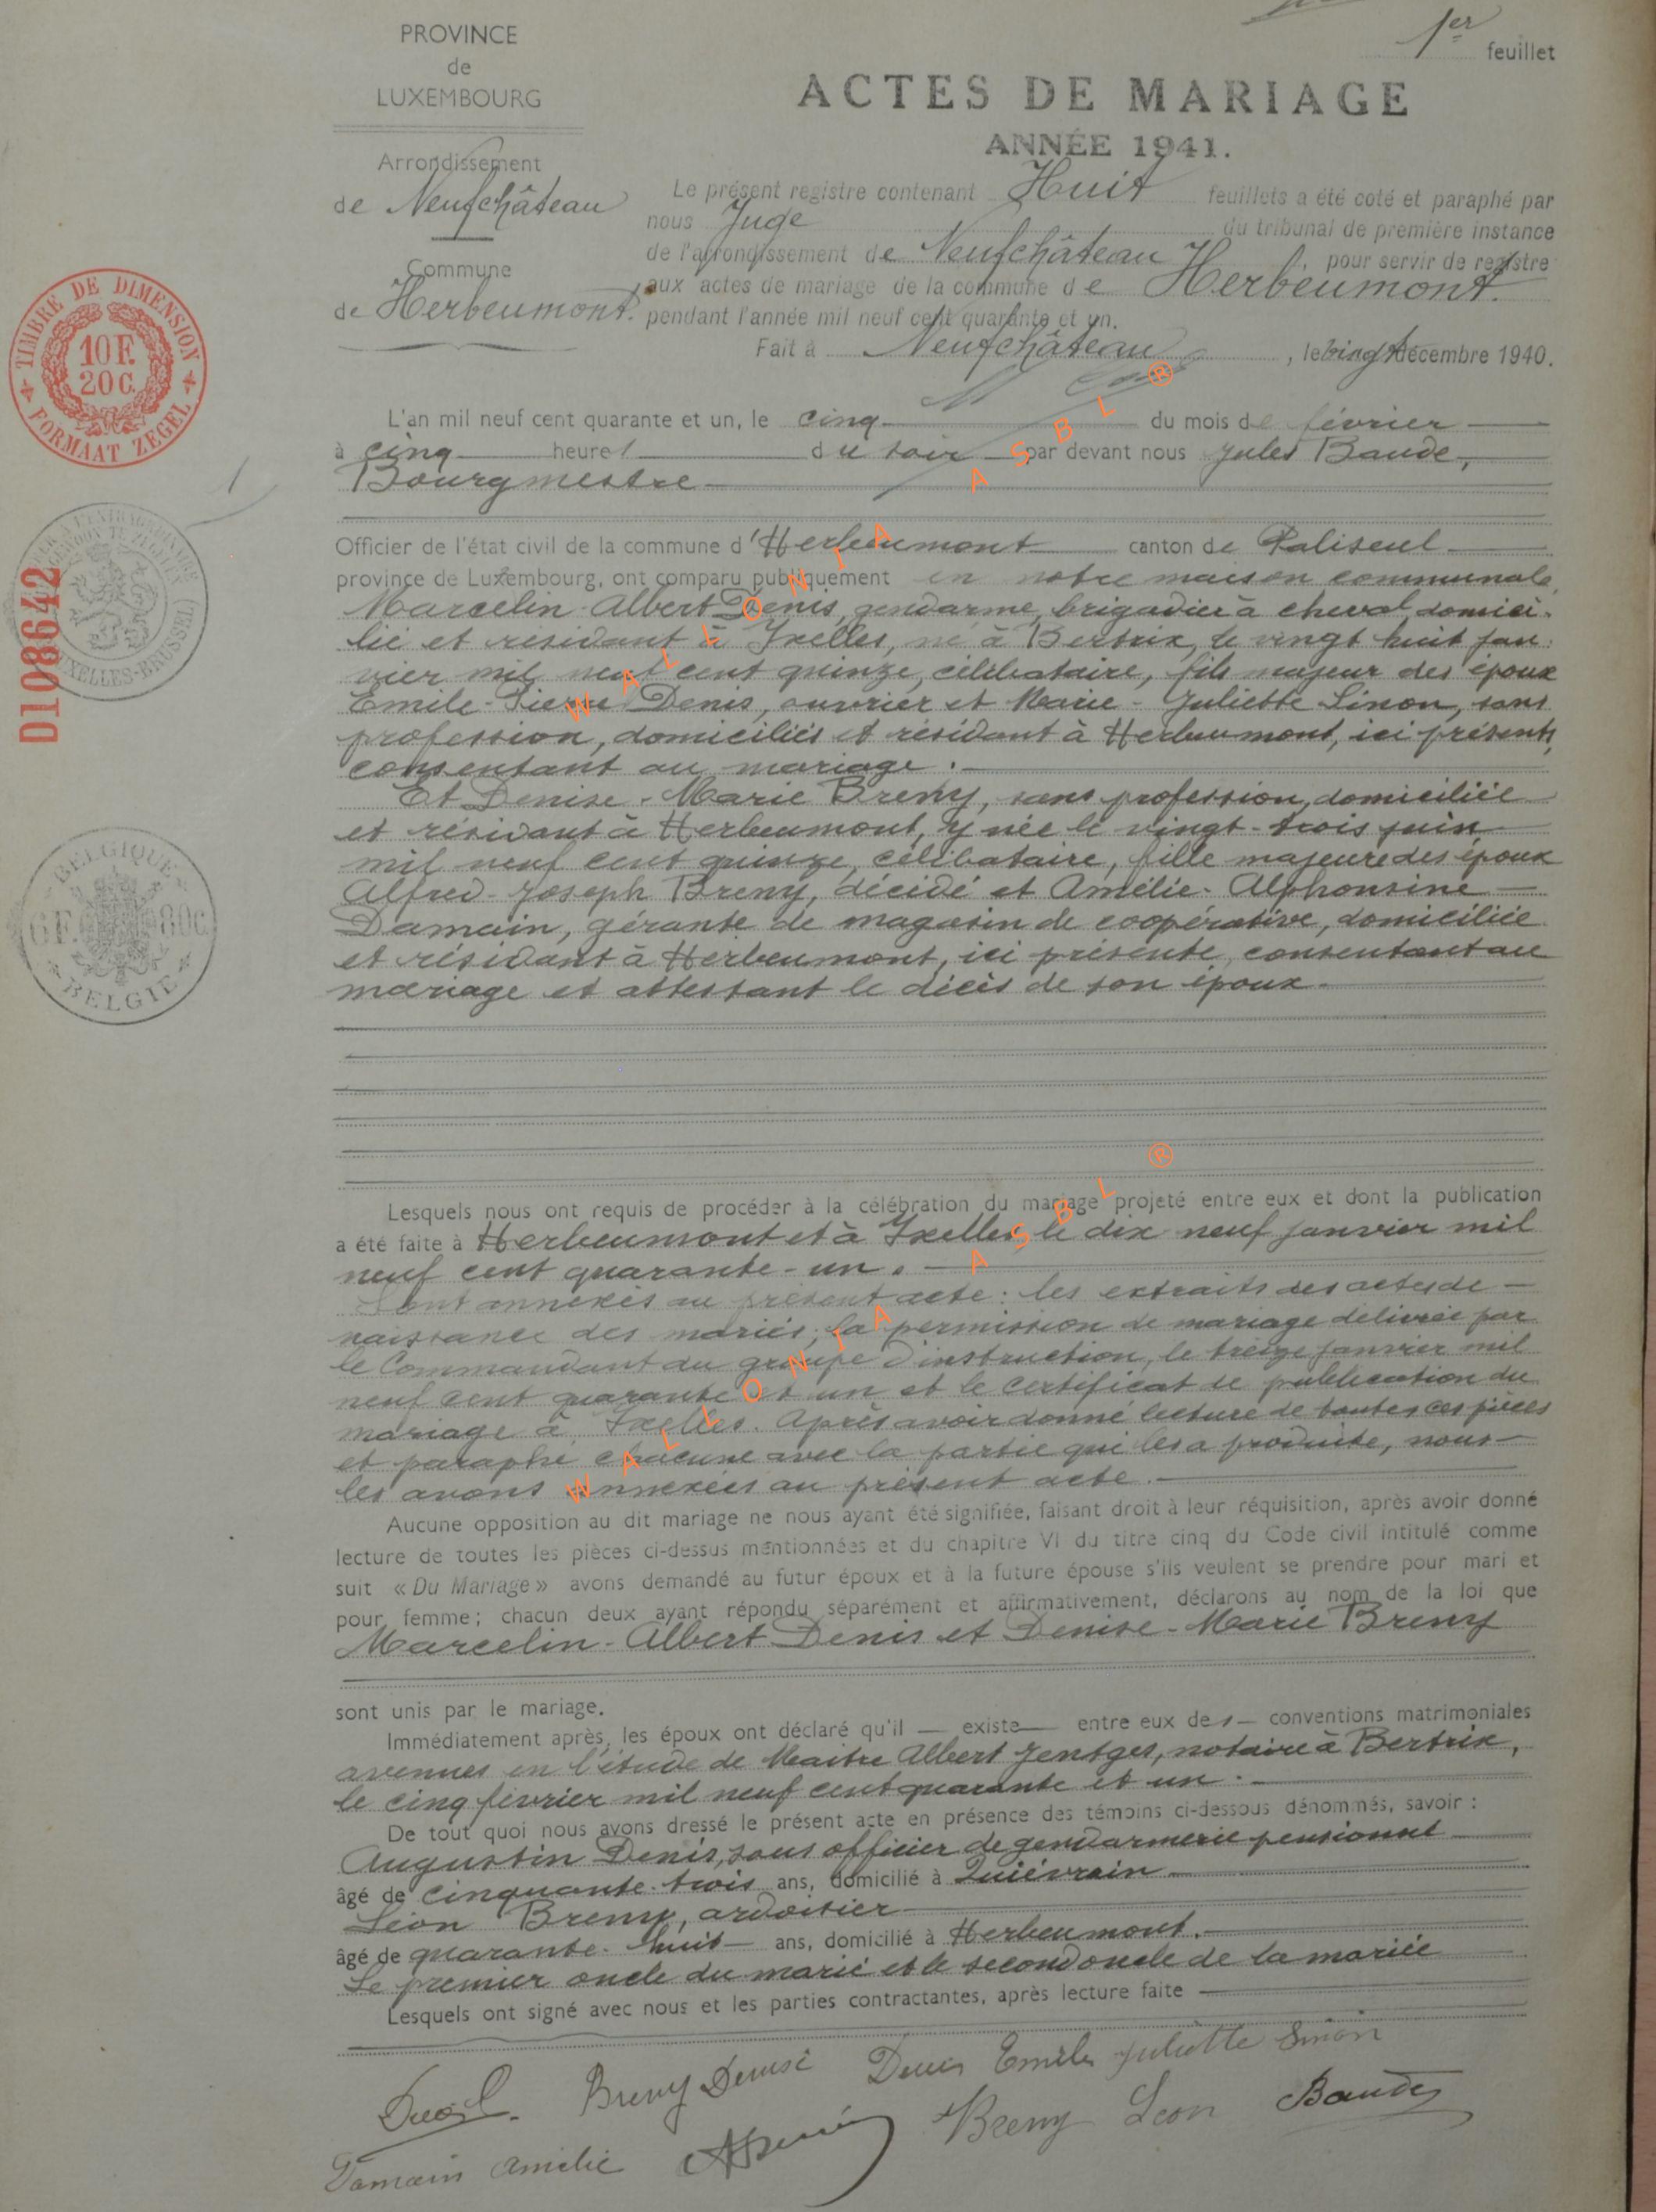 1er feuillet
PROVINCE
de
LUXEMBOURG
ACTES DE MARIAGE
ANNÉE 1941.
Arrondissement
de Neufchâteau
Commune
de Herbeumont.
Le présent registre contenant Huit feuillets a été coté et paraphé par
nous Juge du tribunal de première instance
de l'arrondissement de Neufchâteau, pour servir de registre
aux actes de mariage de la commune de Herbeumont.
pendant l'année mil neuf cent quarante et un.
Fait à Neufchâteau, le vingt décembre 1940.
TIMBRE DE DIMENSION
10 F.
20 C.
FORMAAT ZEGEL
D108642
BELGIQUE
6 F. 80 C.
BELGIE
1
L'an mil neuf cent quarante et un, le cinq du mois de février
à cinq heures du soir par devant nous Jules Baude,
Bourgmestre
Officier de l'état civil de la commune d'Herbeumont canton de Paliseul
province de Luxembourg, ont comparu publiquement en notre maison communale
Marcelin-Albert Denis, gendarme, brigadier à cheval, domici-
lié et résidant à Ixelles, né à Bertrix, le vingt huit jan-
vier mil neuf cent quinze, célibataire, fils majeur des époux
Emile-Pierre Denis, ouvrier et Marie-Juliette Sinon, sans
profession, domiciliés et résidant à Herbeumont, ici présents,
consentant au mariage.
Et Denise-Marie Breny, sans profession, domiciliée
et résidant à Herbeumont, y née le vingt-trois juin
mil neuf cent quinze, célibataire, fille majeure des époux
Alfred-Joseph Breny, décédé et Amélie-Alphonsine
Damain, gérante de magasin de coopérative, domiciliée
et résidant à Herbeumont, ici présente, consentant au
mariage et attestant le décès de son époux.
Lesquels nous ont requis de procéder à la célébration du mariage projeté entre eux et dont la publication
a été faite à Herbeumont et à Ixelles, le dix neuf janvier mil
neuf cent quarante-un.
Sont annexés au présent acte: les extraits des actes de
naissance des mariés, la permission de mariage délivrée par
le Commandant du groupe d'instruction, le treize janvier mil
neuf cent quarante et un et le certificat de publication du
mariage à Ixelles. Après avoir donné lecture de toutes ces pièces
et paraphé chacune avec la partie qui les a produite, nous
les avons annexées au présent acte.
Aucune opposition au dit mariage ne nous ayant été signifiée, faisant droit à leur réquisition, après avoir donné
lecture de toutes les pièces ci-dessus mentionnées et du chapitre VI du titre cinq du Code civil intitulé comme
suit « Du Mariage » avons demandé au futur époux et à la future épouse s'ils veulent se prendre pour mari et
pour femme; chacun deux ayant répondu séparément et affirmativement, déclarons au nom de la loi que
Marcelin-Albert Denis et Denise-Marie Breny
sont unis par le mariage.
Immédiatement après, les époux ont déclaré qu'il — existe — entre eux des — conventions matrimoniales
avenues en l'étude de Maitre Albert Jentges, notaire à Bertrix,
le cinq février mil neuf cent quarante et un.
De tout quoi nous avons dressé le présent acte en présence des témoins ci-dessous dénommés, savoir :
Augustin Denis, sous officier de gendarmerie pensionné
âgé de cinquante-trois ans, domicilié à Quiévrain
Léon Breny, ardoisier
âgé de quarante-huit ans, domicilié à Herbeumont.
Le premier oncle du marié et le second oncle de la mariée
Lesquels ont signé avec nous et les parties contractantes, après lecture faite
Breny Denise Denis Emile Juliette Sinon
Damain Amélie ADenis Breny Léon Baude
WALLONIA ASBL ®
WALLONIA ASBL ®